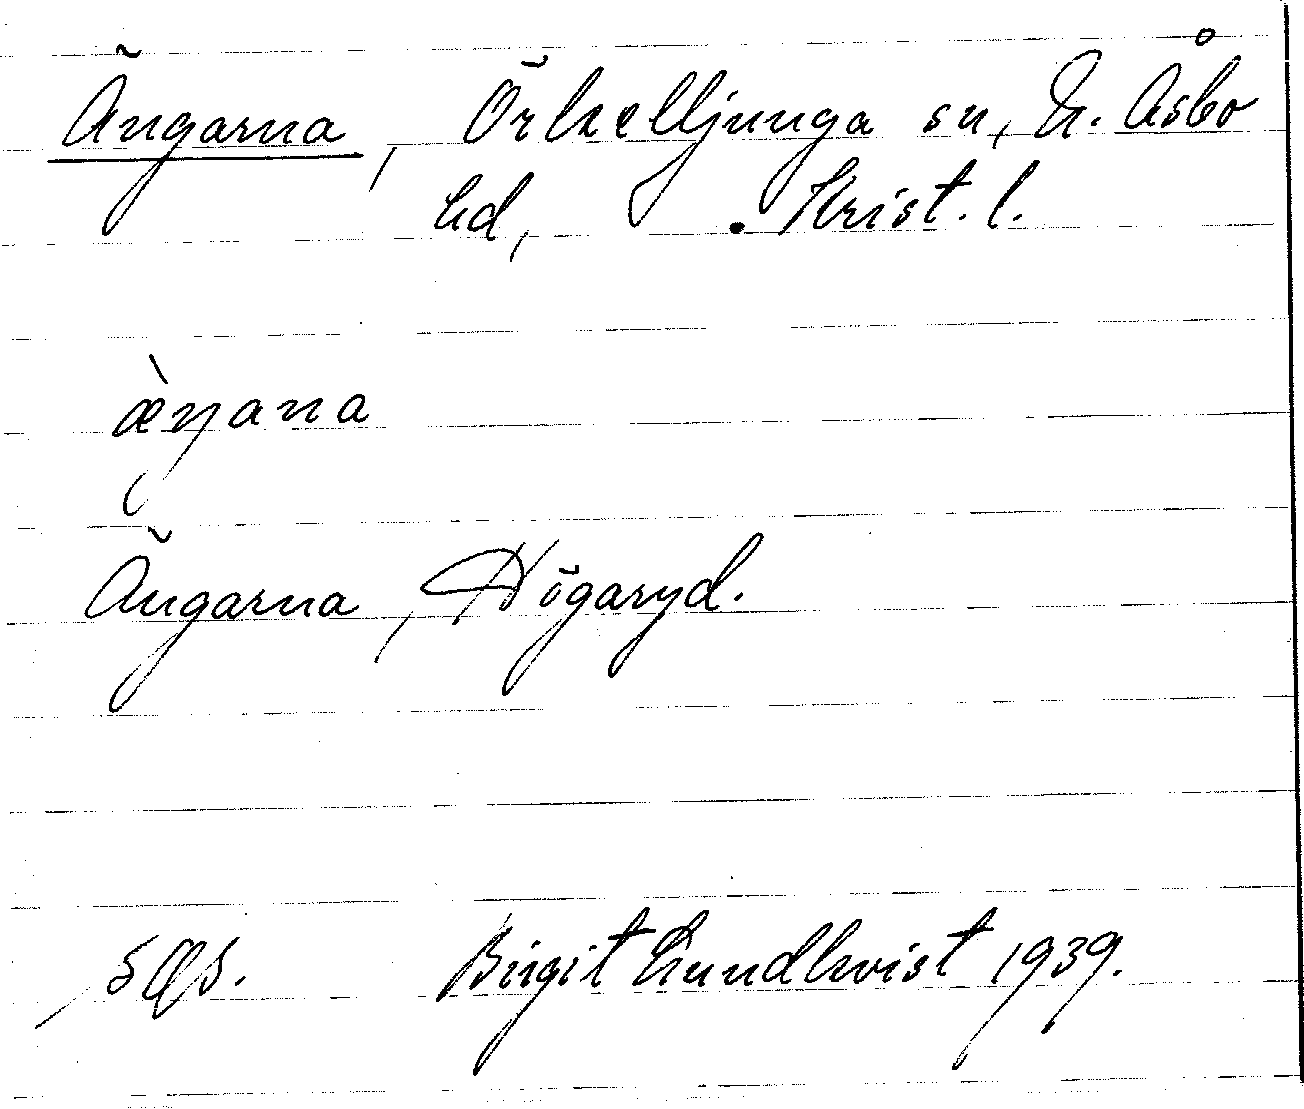 Ängarna, Örkelljunga sn, N. Åsbo
hd, Krist. l.
æ̀ŋana
Ängarna, Högaryd.
Birgit Lundkvist 1939.